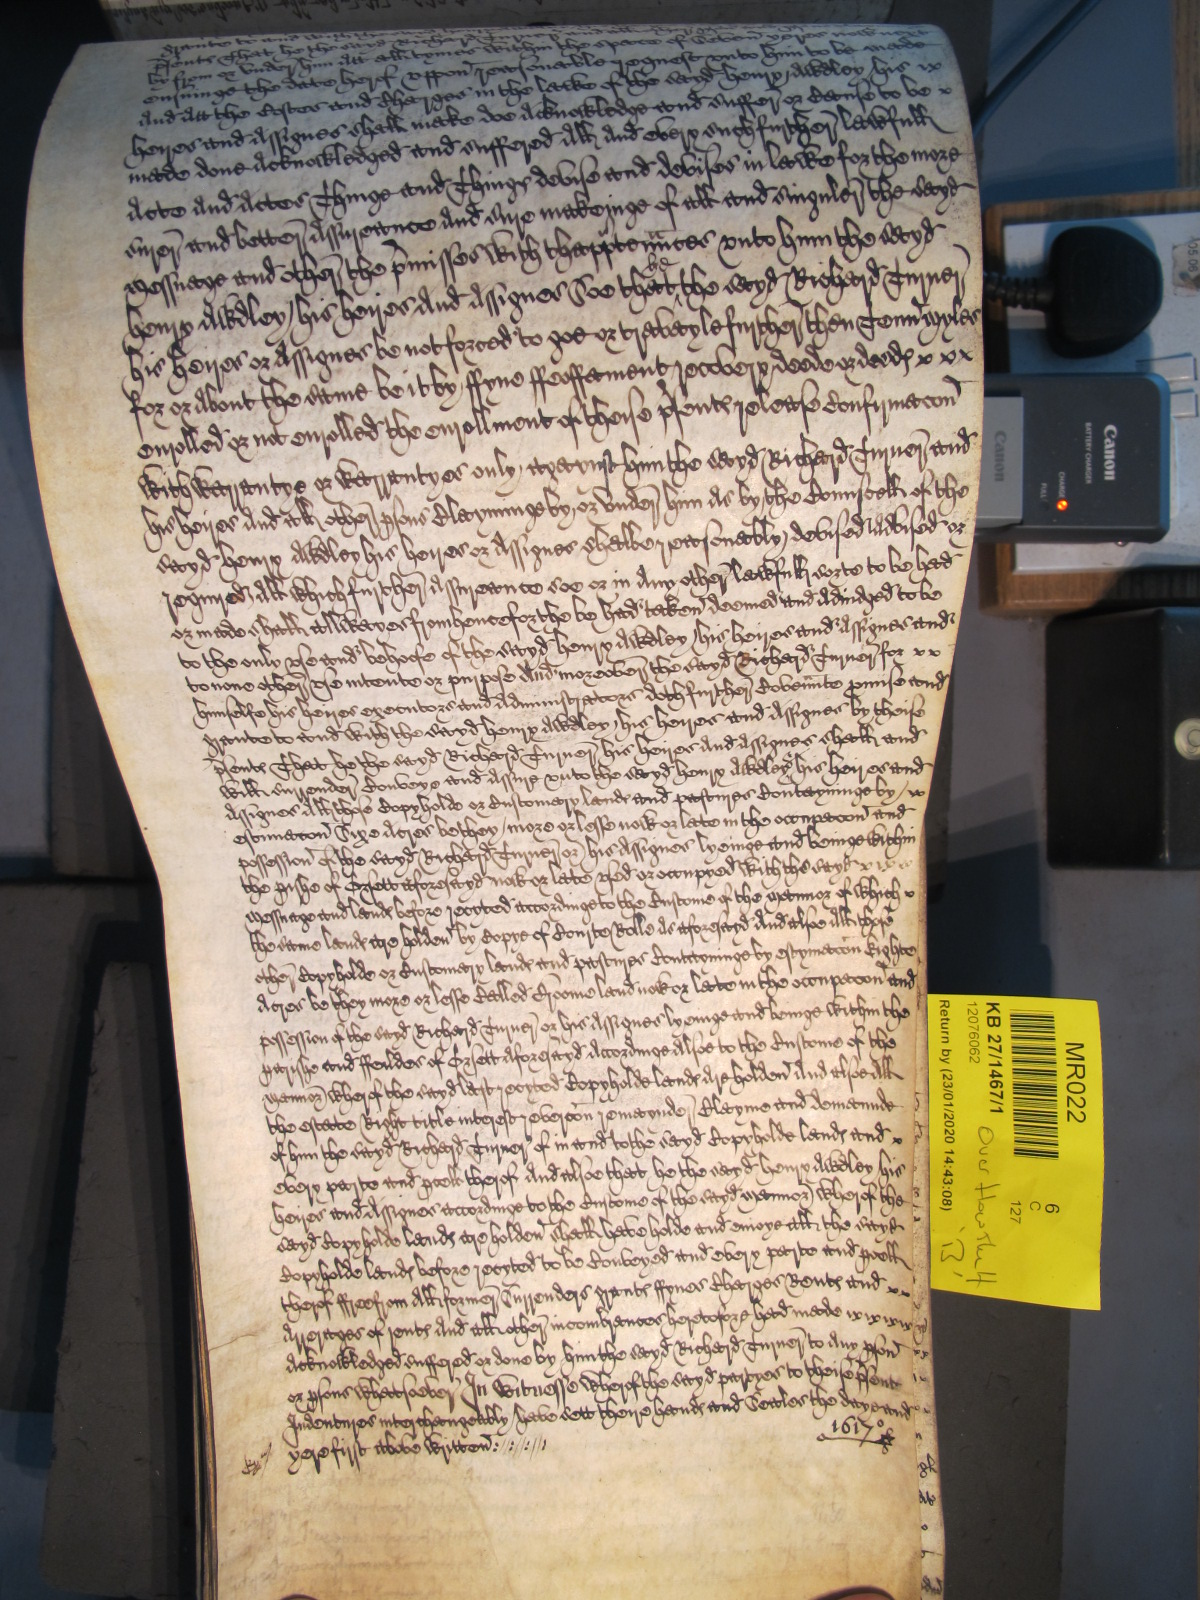 graunte to and with the
p'sents That he the sayd Richard Turner and all
by from or under him att all tymes within the space of Seaven yeres now next
ensuinge the date hereof uppon reasonable request unto him to be made
and att the Costes and Charges in the lawe of the sayd henry Awdley his
heires and Assignes shall make doe Acknowledge and suffer or Cause to be
made done Acknowledged and suffered All and every such further lawfull
Acte and Actes Thinge and Things devise and devises in lawe for the more
surer and better Assureance and sure makeinge of all and singuler the sayd
Messuage and other the p'misses with thapp'ten'nces unto him the sayd
henry Awdley his heires and Assignes Soe that he the sayd Richard Turner
his heires or Assignes be not forced to goe or travayle further then Tenn myles
for or about the same be it by ffyne ffeoffament recovery deede or deeds x x x
enrolled or not enrolled the enrollment of theise p'sents release Confirmacon
with warrantye or warrantyes only agaynst him the sayd Richard Turner and
his heires and all other p'sons Clayminge by or under him As by the Councell of the
sayd henry Awdley his heires or Assignes shalbe reasonably devised advised or
required All which further Assureance soe or in Any other lawfull sorte to be had
or made shall allwayes from henceforthe be had taken deemed and Adiudged to be
to the only use and behoofe of the sayd henry Awdley his heires and Assignes and
to none other use intente or purpose And moreover the sayd Richard Turner for x x
himselfe his heires executors and Administrators doth further Coven'nte p'mise and
graunte to and with the sayd henry Awdley his heires and Assignes by theise
p'sents That he the sayd Richard Turner his heires and Assignes shall and
will surrender Conveye and Assure unto the sayd henry Awdley his heires and
Assignes All those Copyholde or Customary lands and pastures Contayninge by
estimacon Sixe Acres be they more or lesse now or late in the occupacon and
possession of the sayd Richard Turner or his Assignes lyeinge and beinge within
the p'ishe of Orsett aforesayd now or late used or occupyed with the sayd x x x
Messuage and lands before recyted accordinge to the Custome of the Mannor of which x
the same lands are holden by Copye of Courte Rolle As aforesayd And alsoe All those
other Copyholde or Customary lands and pastures Contayninge by estymacon Eighte
Acres be they more or lesse Called Croome land now or late in the occupacon and
possession of the sayd Richard Turner or his Assignes lyeinge and beinge within the
parishe and ffeildes of Orsett Aforesayd Accordinge Alsoe to the Custome of the
Mannor wherof the sayd last recyted Copyholde lands Are holden And alsoe All
the estate Right title interest rever'con remaynder Clayme and demaunde
of him the sayd Richard Turner of in and to the sayd Copyholde lands and x
every parte and p'cell therof And alsoe that he the sayd henry Awdley his
heires and Assignes accordinge to the Custome of the sayd Mannor wherof the
sayd Copyholde lands are holden shall have holde and enioye all the sayd
Copyholde lands before recyted to be Conveyed and every parte and p'cell
therof ffree from All former Surrenders graunts ffynes Charges Rents and x x
Arrerages of rents And all other incombrances heretofore had made
Acknowledged suffered or done by him the sayd Richard Turner to Any p'son
or p'sons whatsoever In Witnesse wherof the sayd partyes to theise p'sent
Indentures interchangeably have sett theire hands and Seales the daye and
yere first above written
1617
MR022
6
C
127
KB 27/1467/1
12076062
Return by (23/01/2020 14:43:08)
Canon
BATTERY CHARGER
CHARGE
FULL
Canon